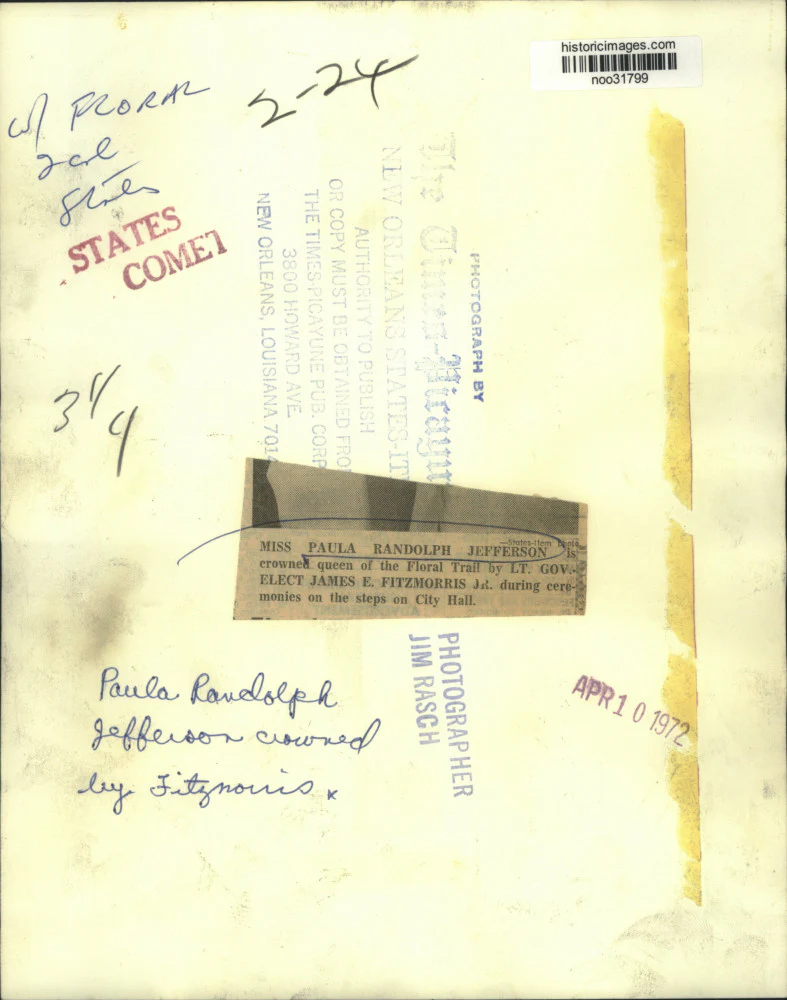 historicimages.com
noo31799
w/ FLORAL
2 col
States
2-24
STATES
COMET
3 1/4
PHOTOGRAPH BY
The Times-Picayun
NEW ORLEANS STATES-IT
AUTHORITY TO PUBLISH
OR COPY MUST BE OBTAINED FRO
THE TIMES-PICAYUNE PUB. CORP
3800 HOWARD AVE.
NEW ORLEANS, LOUISIANA 7014
—States-Item Photo
MISS PAULA RANDOLPH JEFFERSON is
crowned queen of the Floral Trail by LT. GOV.-
ELECT JAMES E. FITZMORRIS JR. during cere-
monies on the steps on City Hall.
PHOTOGRAPHER
JIM RASCH
APR 10 1972
Paula Randolph
Jefferson crowned
by Fitzmorris x